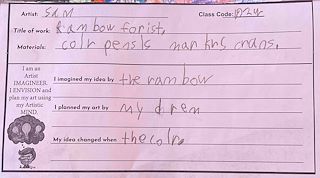 Artist: SAM Class Code: A24
Title of work: Rambow forist.
Materials: colr pensls markrs crans.
I am an
Artist
IMAGINEER.
I ENVISION and
plan my art using
my Artistic
MIND.
I imagined my idea by the rambow
I planned my art by my dren
My idea changed when the colr